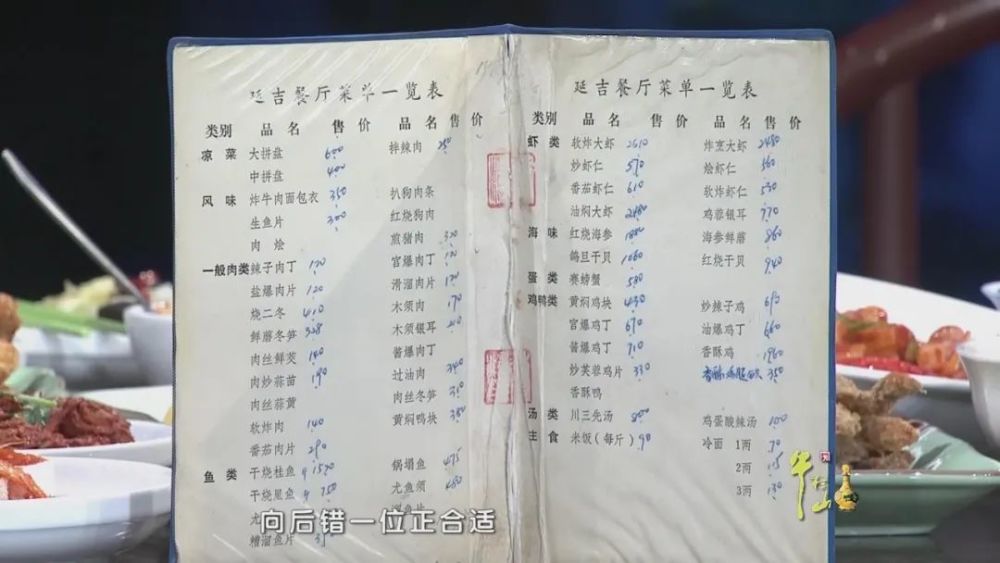 延吉餐厅菜单一览表
类别 品名 售价 品名 售价
凉菜 大拼盘 600 拌辣肉 250
中拼盘 400
风味 炸牛肉面包衣 350 扒狗肉条
生鱼片 300 红烧狗肉
肉烩 煎猪肉 320
一般肉类 辣子肉丁 120 宫爆肉丁 120
盐爆肉片 120 滑溜肉片 120
烧二冬 410 木须肉 170
鲜蘑冬笋 328 木须银耳 210
肉丝鲜茭 140 酱爆肉丁
肉炒蒜苗 190 过油肉 340
肉丝蒜黄 肉丝冬笋
软炸肉 140 黄焖鸭块 380
番茄肉片 290
鱼类 干烧桂鱼 锅塌鱼 475
干烧黑鱼 750 尤鱼须 480
糟溜鱼片
延吉餐厅菜单一览表
类别 品名 售价 品名 售价
虾类 软炸大虾 2610 炸烹大虾 2480
炒虾仁 570 烩虾仁 560
番茄虾仁 610 软炸虾仁 530
油焖大虾 2480 鸡蓉银耳 770
海味 红烧海参 1880 海参鲜蘑 860
鸽旦干贝 1060 红烧干贝 940
蛋类 赛螃蟹 580
鸡鸭类 黄焖鸡块 430 炒辣子鸡 690
宫爆鸡丁 670 油爆鸡丁 660
酱爆鸡丁 710 香酥鸡 1960
炒芙蓉鸡片 330 350
香酥鸭
汤类 川三先汤 800 鸡蛋酸辣汤 100
主食 米饭(每斤) 90 冷面 1两 70
2两 115
3两 130
向后错一位正合适